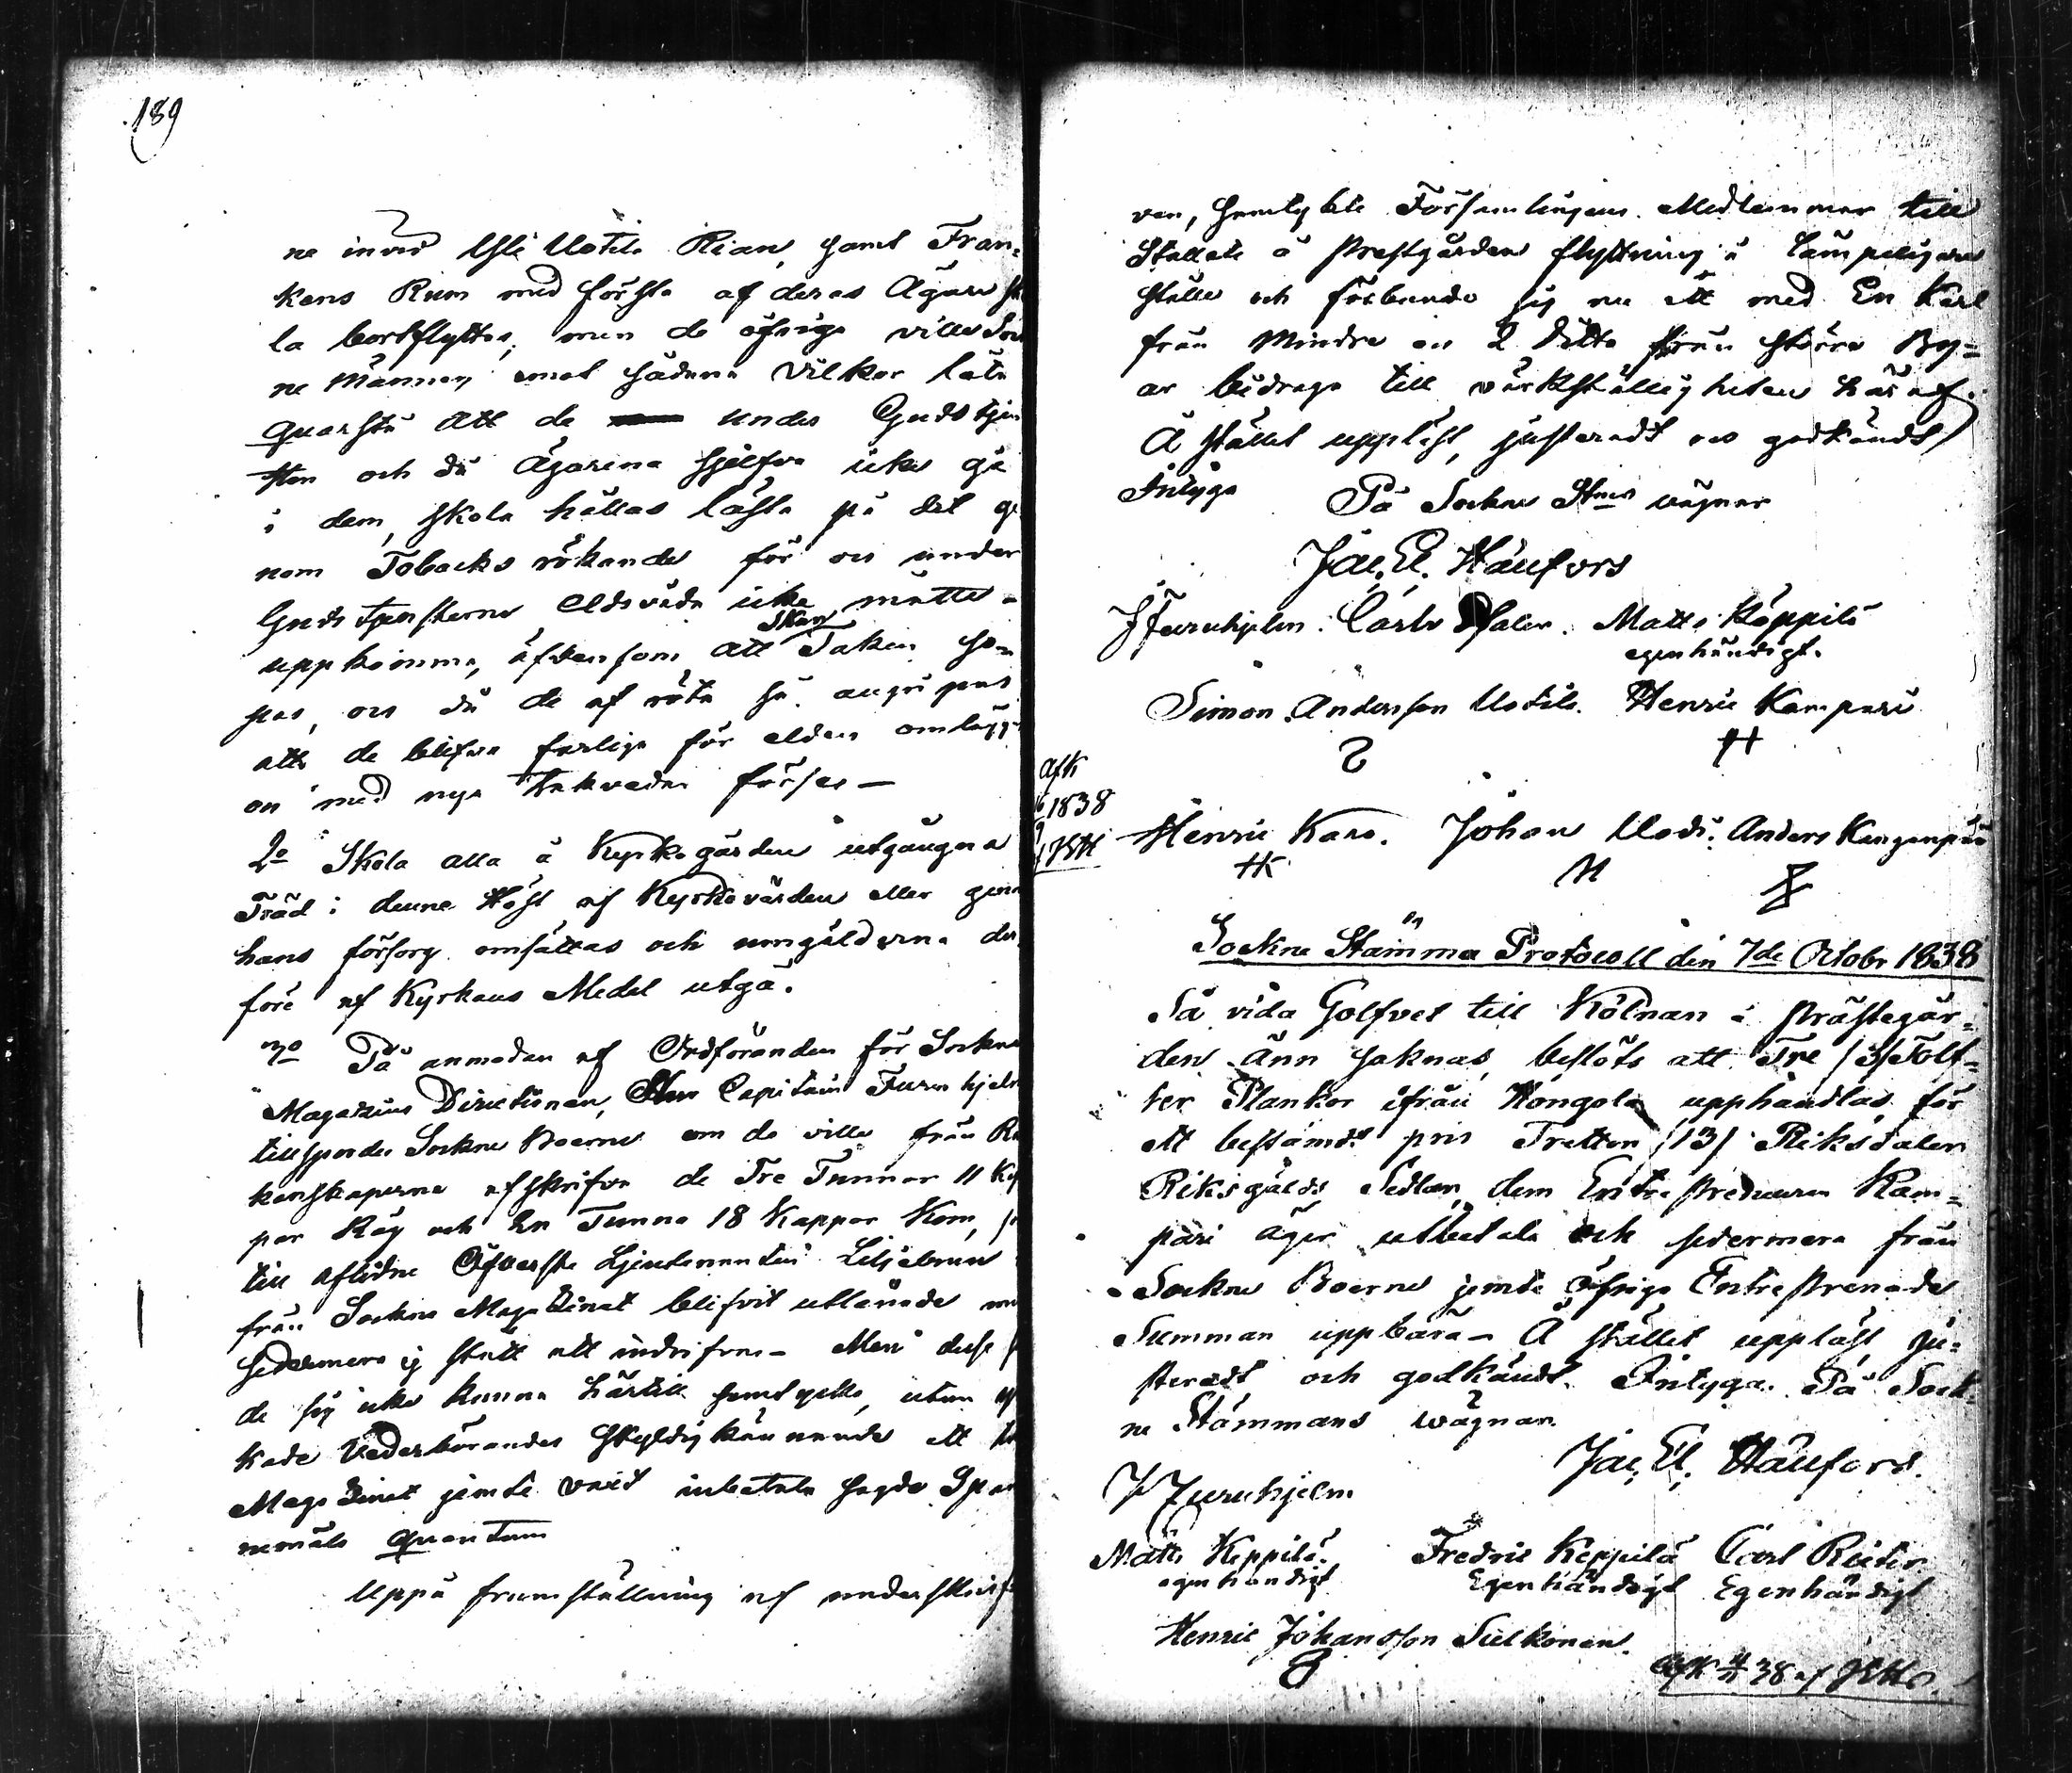 189
ne invid Uotila Rian, samt Fran-
kens Rum med första af deras Ägare
la bortflyttas, men de öfriga ville
ne männen emot sådana Vilkor låta
quarstå att de under Gudstjen
sten och då Ägarena sjelfva icke gå
i dem, skola hållas låsta på det ge
nom Tobacks rökande för oss under
Gudstjensterne Eldsvåda icke måtte
uppkomma, äfvensom att Skan Taken so-
pas, och då de af röta så angripas
att de blifva farliga för elden omlägg
och med nya Takveden förses —
2o Skola alla å Kyrkogården utgångna
Träd i denne Höst af Kyrkovärden eller genom
hans försorg omsättas och omgälderna der
före af Kyrkans Medel utgå.
3o På anmodan af Ordföranden för Sockne
Magazins Directionen, Herr Capitain Furuhjelm
tillspordes Sockne Boerne om de ville från Rä
kenskaperna afskrifva de Tre Tunnor 11 Kap
par Råg och En Tunna 18 Kappar Korn,
till aflidne Öfverste Lieutenanten Liljebrun
från Sockne Magazinet blifvit utlånade
sedermera ej stått att indrifvas - Men desse
de sig icke kunna härtill samtycka, utan
kade Vederbörandes Skyldigkännande att till
Magazinet jemte inbetala sagde Span
nemåls quantum
Uppå framställning af underskrif
ven, samtyckte Församlingens Medlemmar till
Stallets å Prestgården flyttning å Lämpeligare
ställe och förbundo sig nu att med En Karl
från Mindre och 2 Ditto från större By-
ar bidraga till värkställigheten häraf.
Å stället uppläst, justeradt och godkändt
Intyga På Sockne Stns wägnar
Jac. El. Häufors
J Furuhjelm. Carl Matts Käppilä
egenhändigt.
Simon Andersson Uotila. Henric Kampari
Afk
1838
Henric Karo. Johan Uodi. Anders Kanganpää
HK
Sockne Stämma Protocoll den 7de Octobr 1838
Så vida Golfvet till Kölnan å Prästegår-
den änn saknas, beslöts att Tre /3/ Tolf-
ter Plankor ifrån Hongola upphandlas för
ett bestämdt pris Tretton /13/ Riksdaler
Riksgälds Sedlar, dem Entreprenuren Kam-
pari äger utbetala och sedermera från
Sockne Boerne jemte öfriga Entreprenade
Summan uppbära - Å stället uppläst ju-
steradt och godkändt. Intyga. På Sock-
ne Stämmans wägnar
Jac. El. Häufors.
J Furuhjelm
Matts Keppilä. Fredric Keppilä Carl Rietir
egenhändigt Egenhändigt Egenhändigt
Henric Johansson Sulkonen.
Afk 38 af